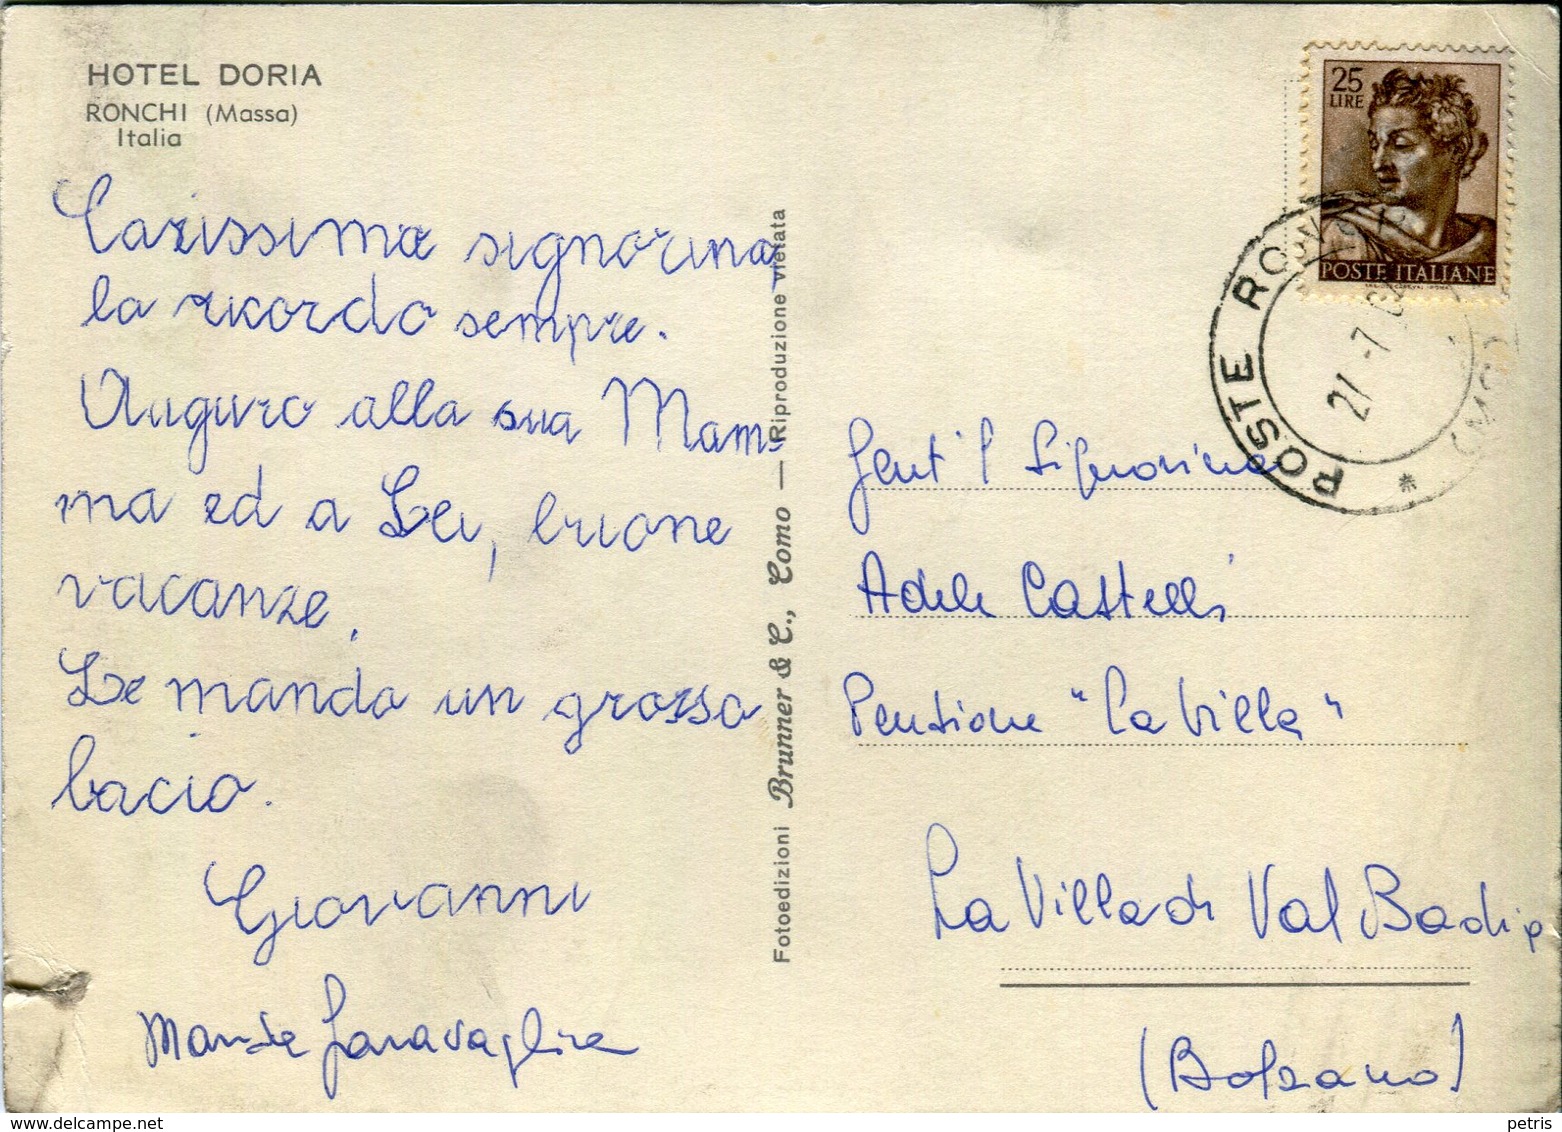 HOTEL DORIA
RONCHI (Massa)
Italia
Carissima signorina
la ricordo sempre.
Auguro alla sua Mam-
ma ed a Lei, buone
vacanze.
Le manda un grosso
bacio.
Giovanni
Garavaglia
Fotoedizioni Brunner & C., Como — Riproduzione vietata
25
LIRE
POSTE ITALIANE
POSTE RONCHI
Gent'l Signorina
Adele Castelli
Pensione "La Villa"
La Villa di Val Badia
(Bolzano)
petris